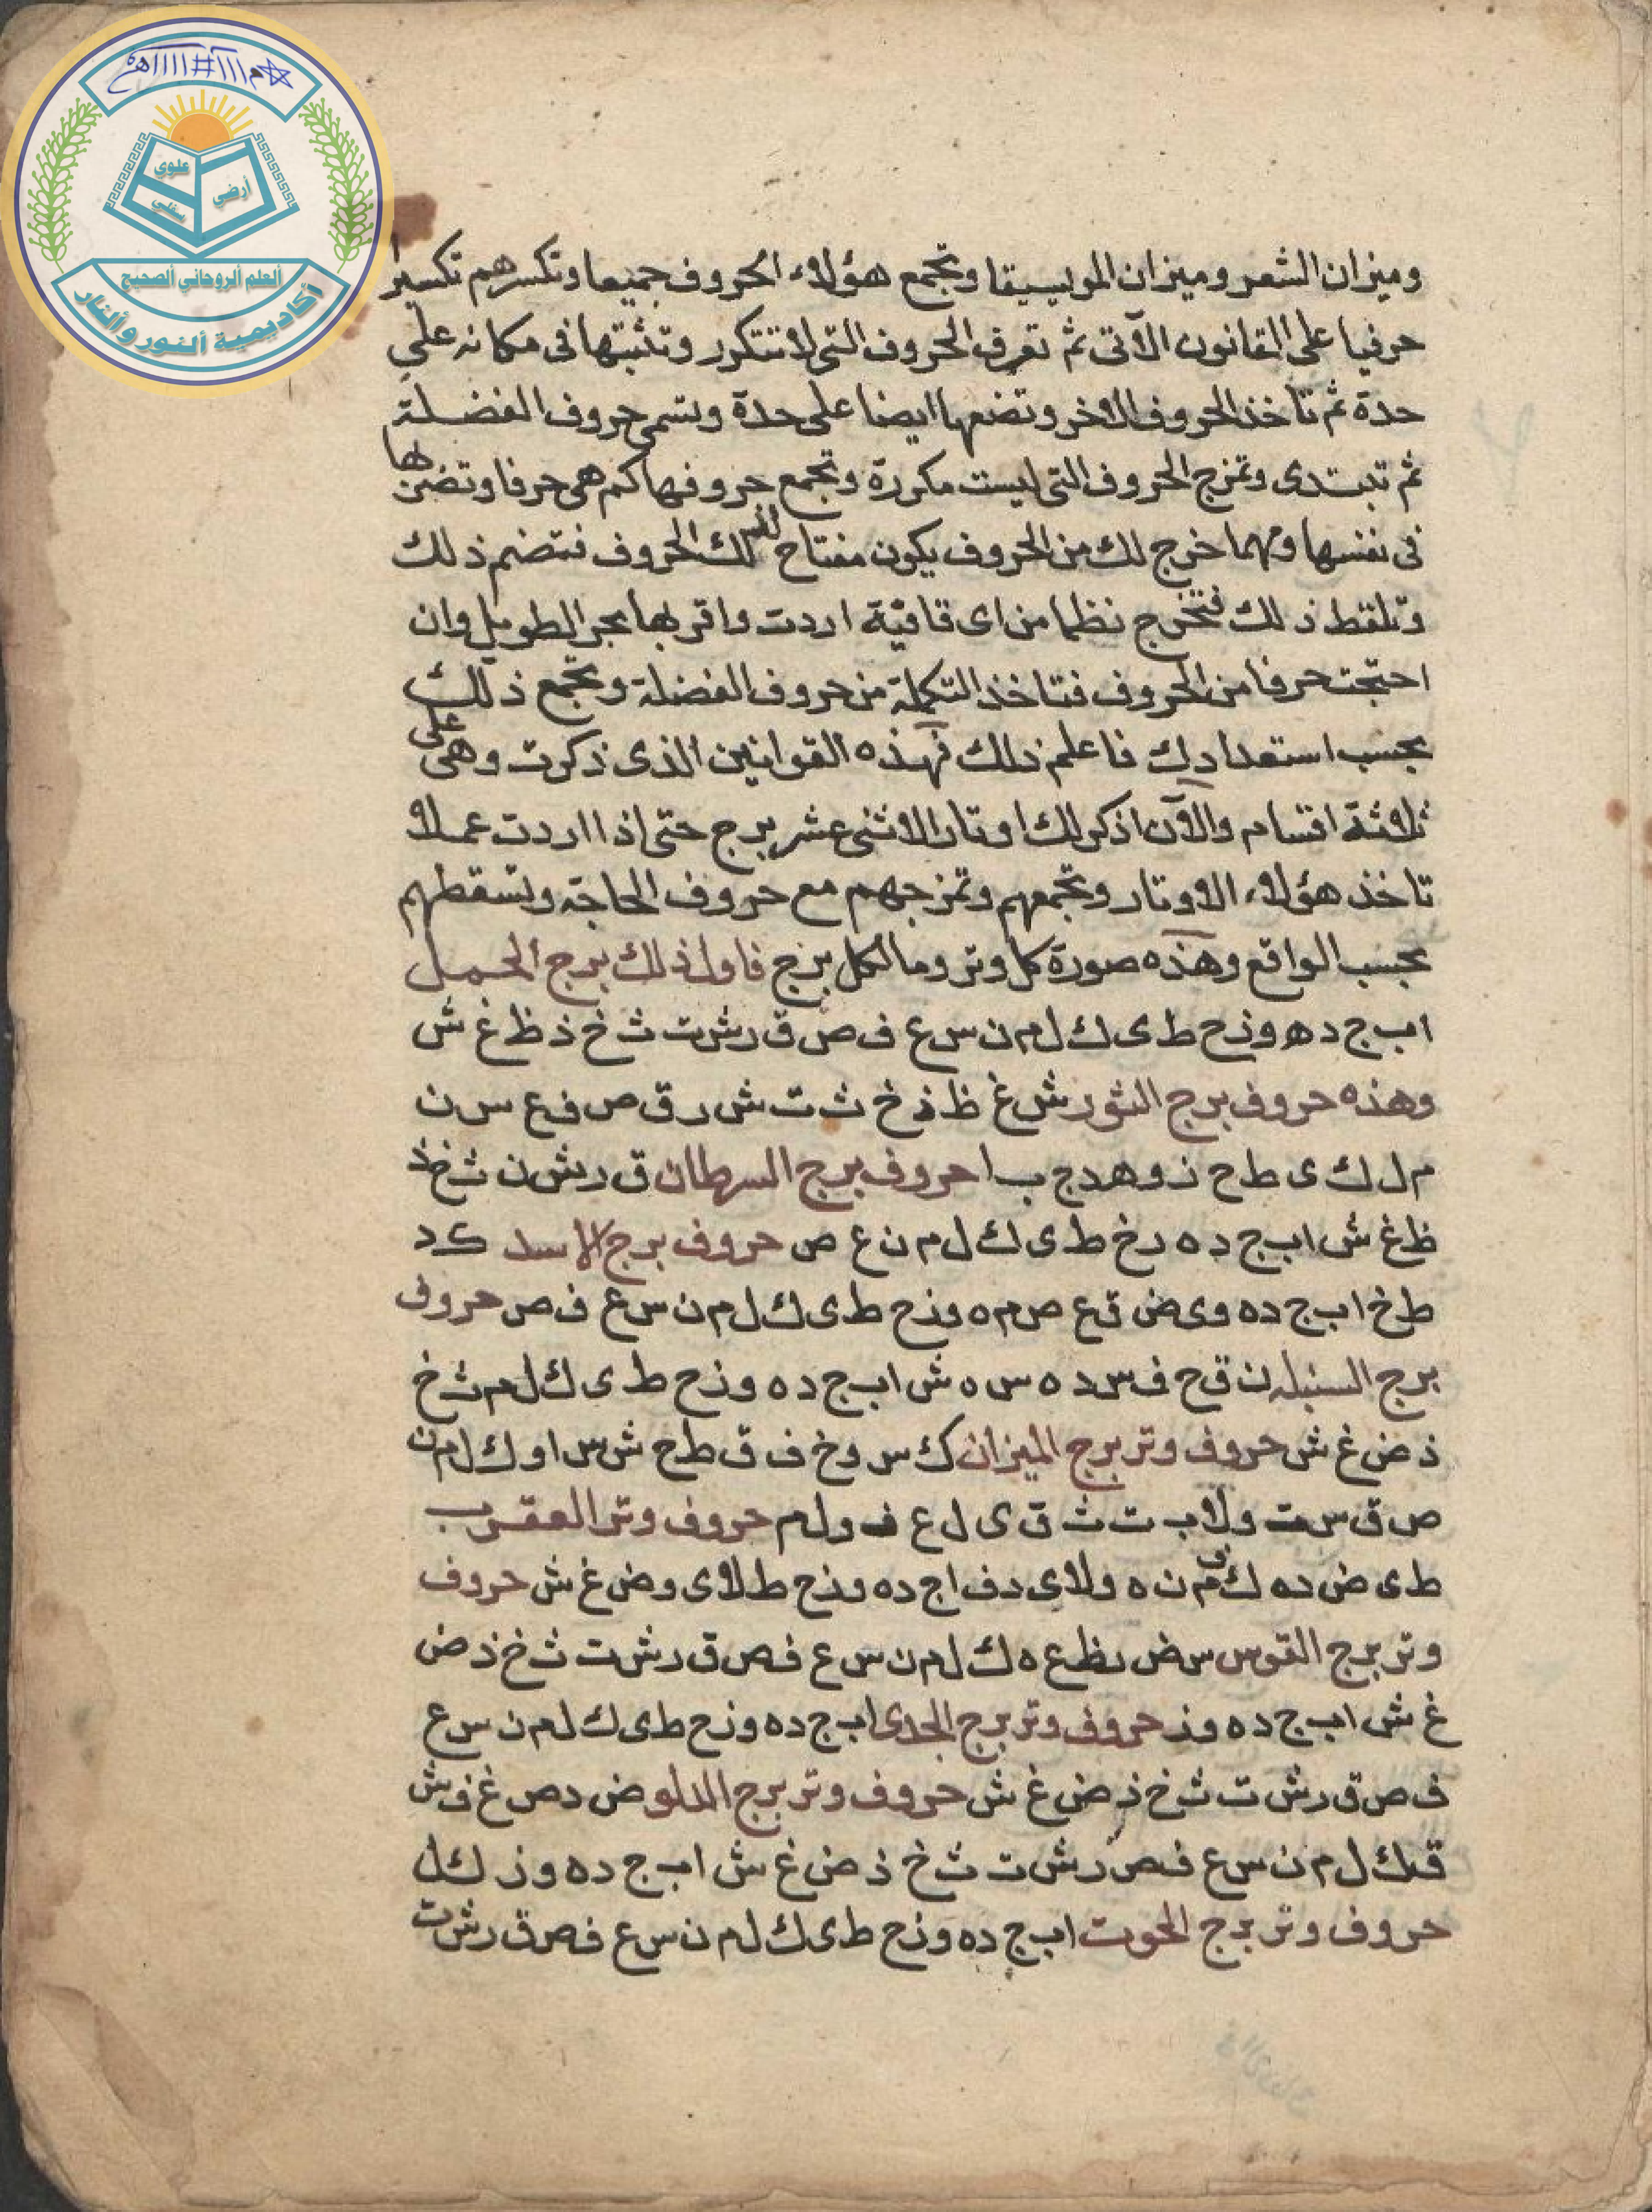 علوي
أرضي
سفلي
ألعلم ألروحاني ألصحيح
أكاديمية ألنور وألنار
وميزان الشعر وميزان الموييسيقا وتجمع هؤلاء الحروف جميعا وتكسرهم تكسيرا
حرفيا على القانون الآتى ثم تعرف الحروف التى لا تتكرر وتثبتها فى مكانه على
حدة ثم تاخذ الحروف الاخر وتضعها ايضا على حدة وتسمى حروف الفضلة
ثم تبتدى وتمزج الحروف التى ليست مكررة وتجمع حروفها كم هى حرفا وتضربها
فى نفسها ومهما خرج لك من الحروف يكون مفتاح لتلك الحروف فتضم ذلك
وتلقط ذلك فتخرج نظما من اى قافية اردت واقربها بحر الطويل وان
احتجت حرفا من الحروف فتاخذ التكملة من حروف الفضلة وتجمع ذلك
بحسب استعدادك فاعلم ذلك فهذه القوانين الذى ذكرت وهى على
ثلاثة اقسام والآن اذكر لك اوتار الاثنى عشر برج حتى اذا اردت عملا
تاخذ هؤلاء الاوتار وتجمعهم وتمزجهم مع حروف الحاجة وتسقطهم
بحسب الواقع وهذه صورة كل وتر وما لكل برج فاول ذلك برج الحمل
ا ب ج د ه و ز ح ط ى ك ل م ن س ع ف ص ق ر ش ت ث خ ذ ظ غ ش
وهذه حروف برج الثور ش غ ظ ذ خ ث ت ش ر ق ص ف ع س ن
م ل ك ى ط ح ز و ه د ج ب ا حروف برج السرطان ق ر ش ن ث خ ذ
ظ غ ش ا ب ج د ه ر خ ط ى ك ل م ن ع ص حروف برج الاسد ك د
ط خ ا ب ج د ه و ى ض ق ع ص م ه و ز ح ط ى ك ل م ن س ع ف ص حروف
برج السنبله ن ق ح ف س د ه س ه ش ا ب ج د ه و ز ح ط ى ك ل م ث خ
ذ ض غ ش حروف وتر برج الميزان ك س و خ ف ق ط ح ش س ا و ك ل م ن
ص ق س ت و لا ب ت ث ق ى ل ع ف و ل م حروف وتر العقرب
ط ى ض د ه ك م ن ه و لا ى د ف ا ج د ه و ز ح ط لا ى و ض غ ش حروف
وتر برج القوس س ض ظ ع ه ك ل م ن س ع ف ص ق ر ش ت ث خ ذ ض
غ ش ا ب ج د ه و ز حروف وتر برج الجدى ا ب ج د ه و ز ح ط ى ك ل م ن س ع
ف ص ق ر ش ت ث خ ذ ض غ ش حروف وتر برج الدلو ض د ص غ ف ش
ق ك ل م ن س ع ف ص ر ش ت ث خ ذ ض غ ش ا ب ج د ه و ز ك ل
حروف وتر برج الحوت ا ب ج د ه و ز ح ط ى ك ل م ن س ع ف ص ق ر ش ت